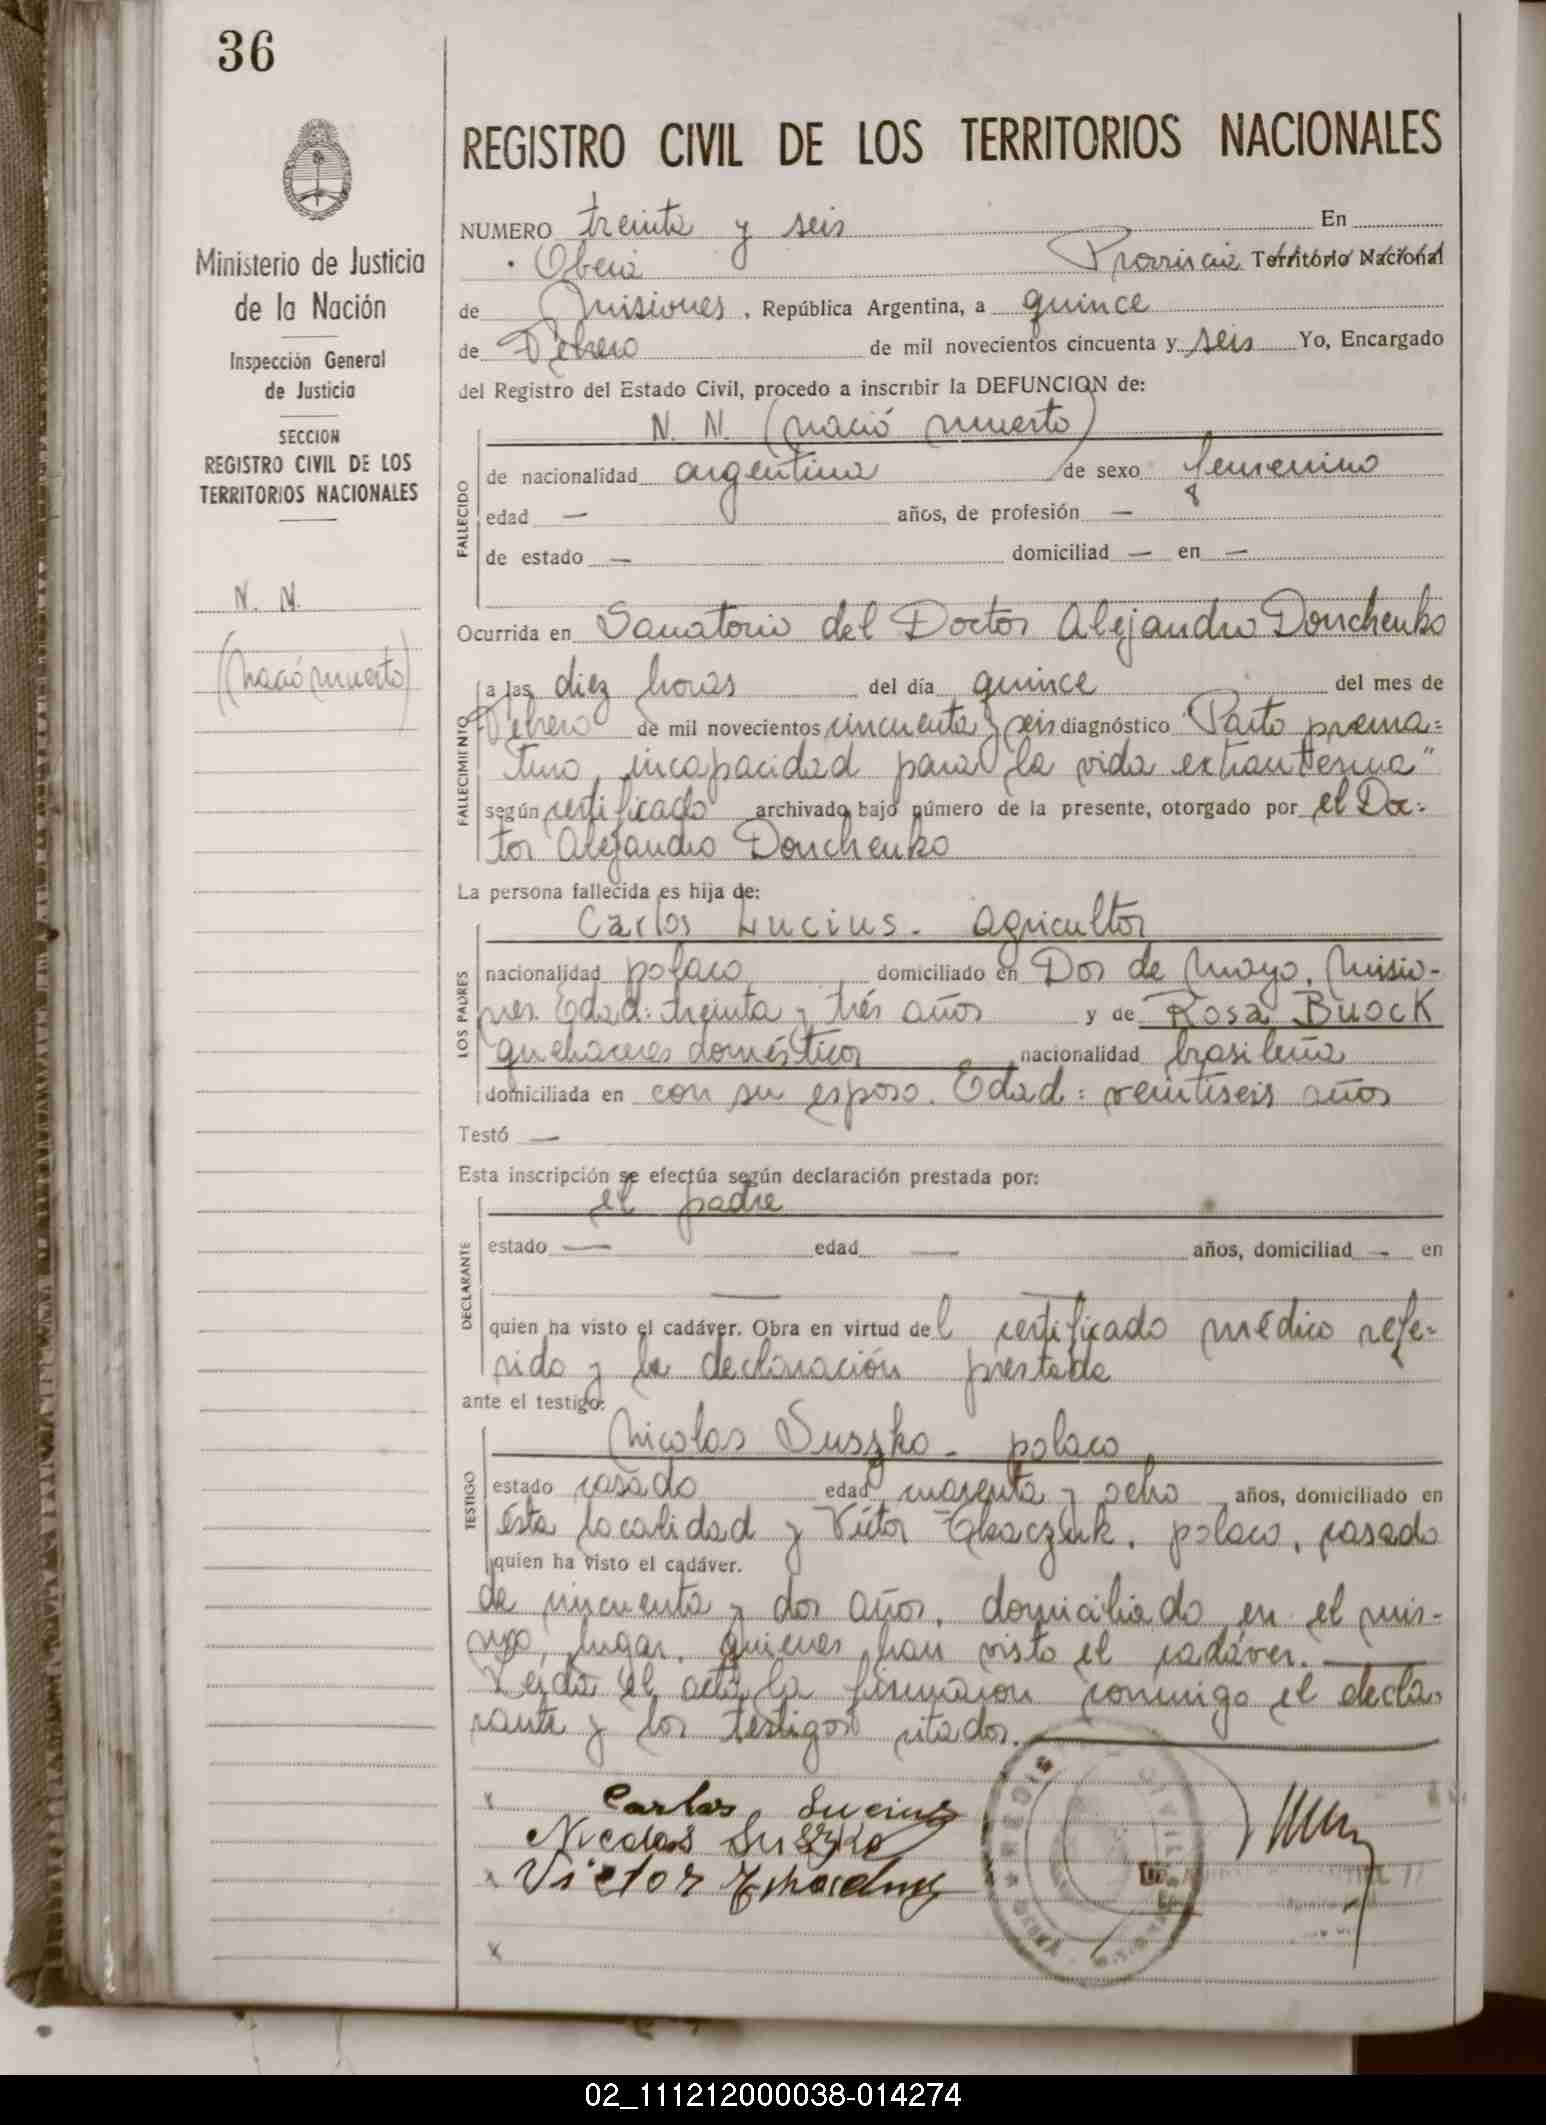 36
REGISTRO CIVIL DE LOS TERRITORIOS NACIONALES
Ministerio de Justicia
de la Nación
Inspección General
de Justicia
SECCION
REGISTRO CIVIL DE LOS
TERRITORIOS NACIONALES
N. N.
(nació muerto)
NUMERO treinta y seis En
Oberá Provincia Territorio Nacional
de Misiones, República Argentina, a quince
de Febrero de mil novecientos cincuenta y seis Yo, Encargado
del Registro del Estado Civil, procedo a inscribir la DEFUNCION de:
N. N. (nació muerto)
FALLECIDO
de nacionalidad argentina de sexo femenino
edad — años, de profesión —
de estado — domiciliad — en —
Ocurrida en Sanatorio del Doctor Alejandro Donchenko
FALLECIMIENTO
a las diez horas del día quince del mes de
Febrero de mil novecientos cincuenta y seis diagnóstico "Parto prema=
turo, incapacidad para la vida extrauterina"
según certificado archivado bajo número de la presente, otorgado por el Doc=
tor Alejandro Donchenko
La persona fallecida es hija de:
LOS PADRES
Carlos Lucius - agricultor
nacionalidad polaco domiciliado en Dos de Mayo, Misio-
nes. Edad: treinta y trés años y de Rosa Buock
quehaceres domésticos nacionalidad brasileña
domiciliada en con su esposo. Edad: veintiseis años
Testó —
Esta inscripción se efectúa según declaración prestada por:
el padre
DECLARANTE
estado — edad — años, domiciliad — en
—
quien ha visto el cadáver. Obra en virtud del certificado médico refe-
rido y la declaración prestada
ante el testigo:
TESTIGO
Nicolas Suszko - polaco
estado casado edad cuarenta y ocho años, domiciliado en
ésta localidad y Víctor polaco, casado
quien ha visto el cadáver.
de cincuenta y dos años, domiciliado en el mis-
mo lugar, quienes han visto el cadáver. —
Leída el acta la firmaron conmigo el decla-
rante y los testigos citados. —
x Carlos Lucius
Nicolas Suszko
x Victor
x
02_111212000038-014274